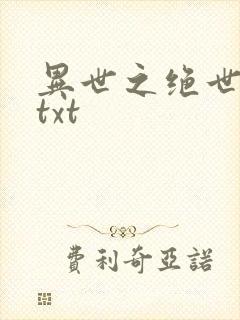 異世之绝世
txt
費利奇亞諾